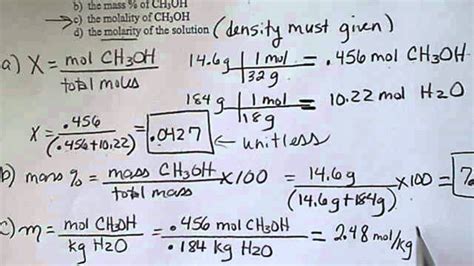 b) the mass % of CH3OH
c) the molality of CH3OH
d) the molarity of the solution (density must given)
a) X = mol CH3OH / total moles
14.6g | 1 mol / 32 g = .456 mol CH3OH
184 g | 1 mol / 18g = 10.22 mol H2O
X = .456 / (.456+10.22) = .0427 ← unitless
b) mass % = mass CH3OH / total mass x100 = 14.6g / (14.6g+184g) x100 = 7
c) m = mol CH3OH / kg H2O = .456 mol CH3OH / .184 kg H2O = 2.48 mol/kg